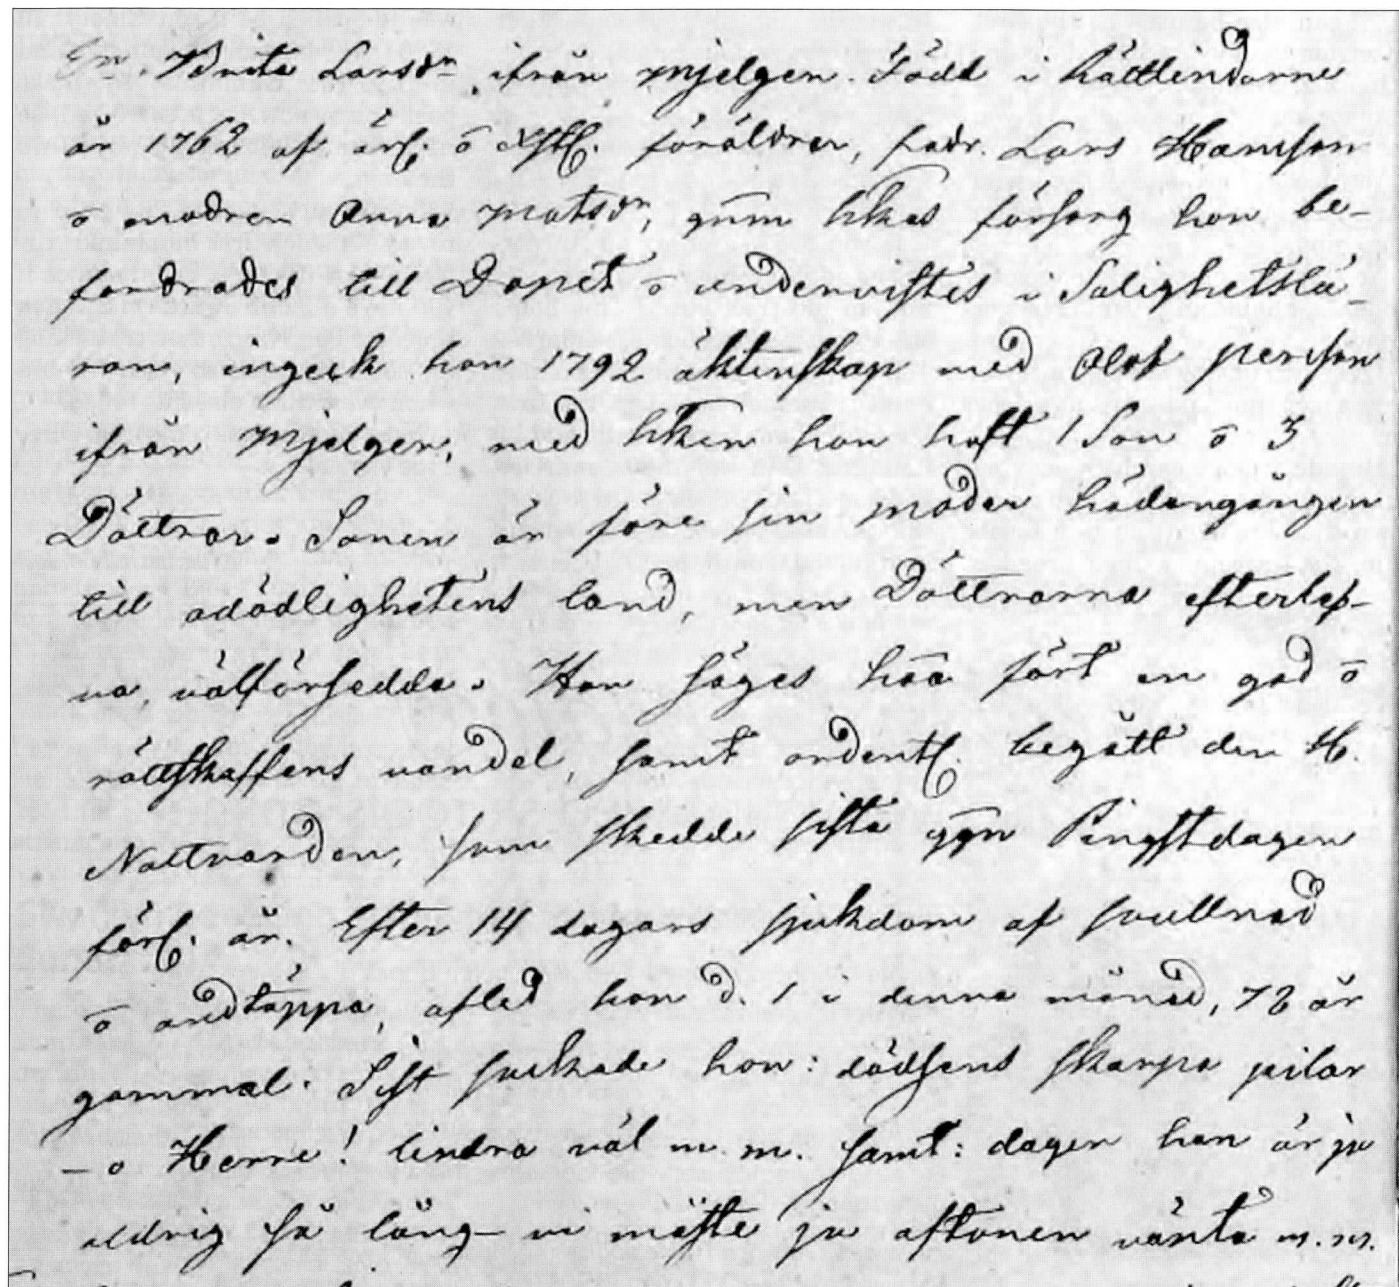 Brita Larsdr ifrån Mjelgen. Född i Rättlindorne
år 1762 af ärl. ō xstl. föräldrar, fadr. Lars Hansson
ō modren Anna Matsdr, gnm hkas försorg hon be-
fordrades till Dopet ō undervistes i Salighetslä-
ran, ingeck hon 1792 äktenskap med Olof Persson
ifrån Mjelgen, med hken hon haft 1 Son ō 3
Döttrar. Sonen är före sin moder hädangången
till odödlighetens land, men Döttrarna efterlef-
va, välförsedda. Hon säges haa fört en god ō
rättskaffens vandel, samt ordentl. begått den H.
Nattvarden, som skedde sista ggn Pingstdagen
förl. år. Efter 14 dagars sjukdom af svullnad
ō andtäppa, afled hon d. 1 i denna månad, 72 år
gammal. Sist suckade hon: dödsens skarpa pilar
– o Herre! lindra väl m.m. samt: dagen han är ju
aldrig så lång – vi måste ju aftonen vänta m.m.